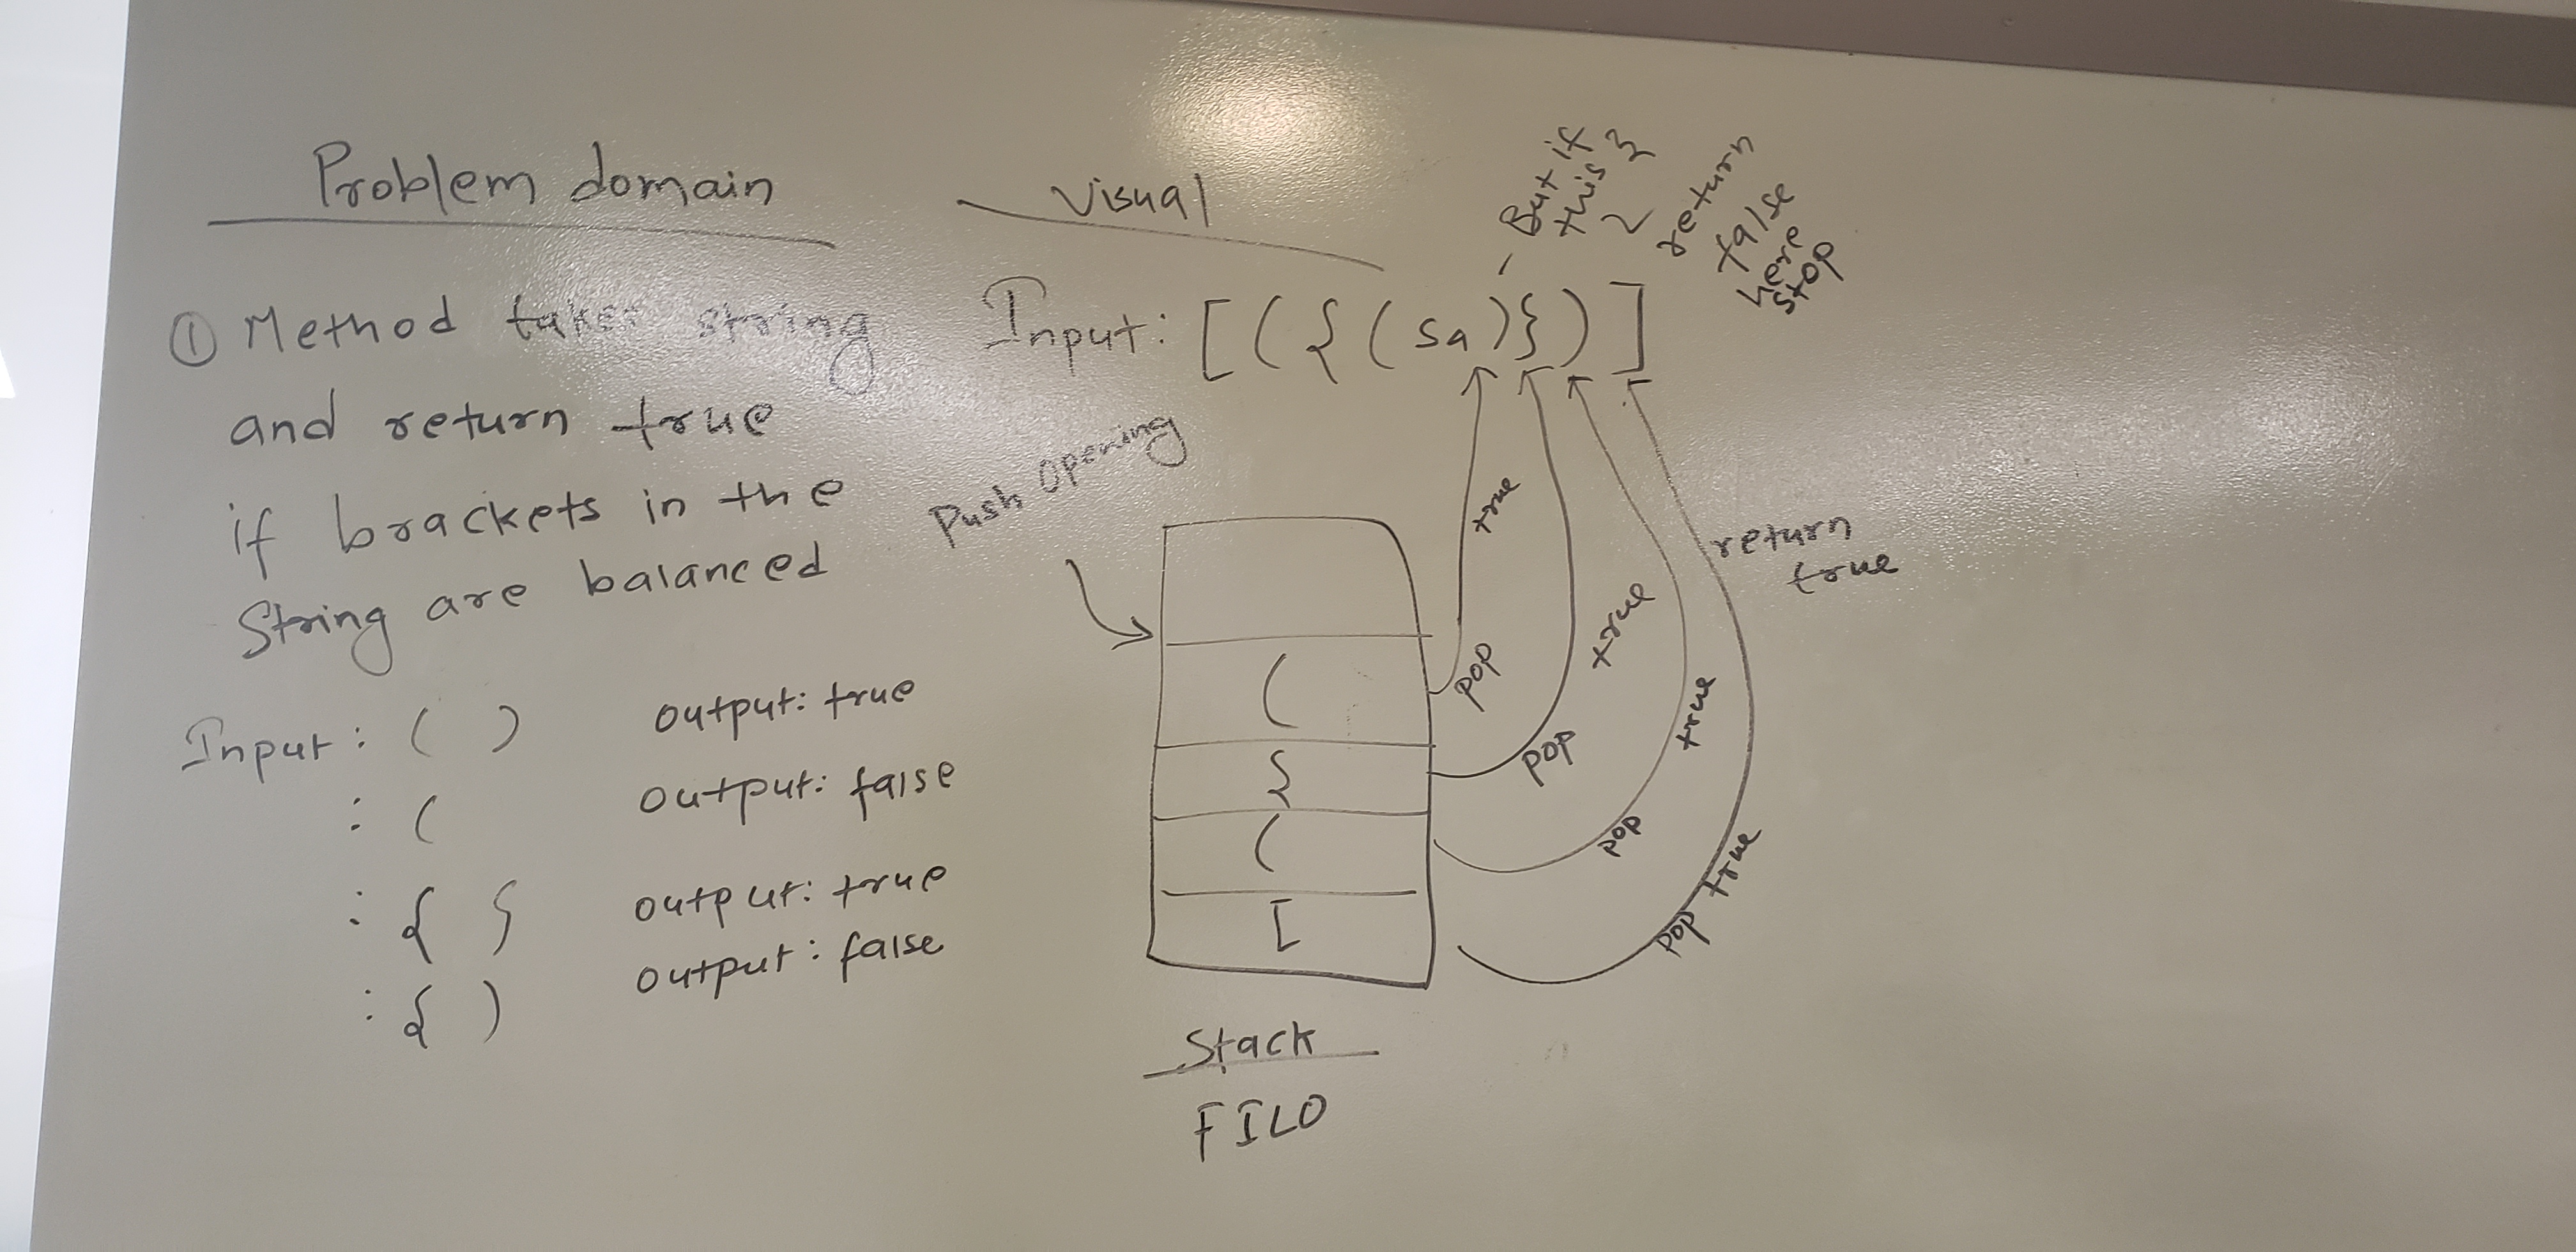 Problem domain
① Method takes string
and return true
if brackets in the
String are balanced
Input: ( ) output: true
: ( output: false
: { } output: true
: { ) output: false
Visual
- But if
this }
return
false
here
stop
Input: [ ( { ( Sa ) } ) ]
Push opening
(
{
(
[
pop true
pop true
pop true
pop true
return
true
Stack
FILO